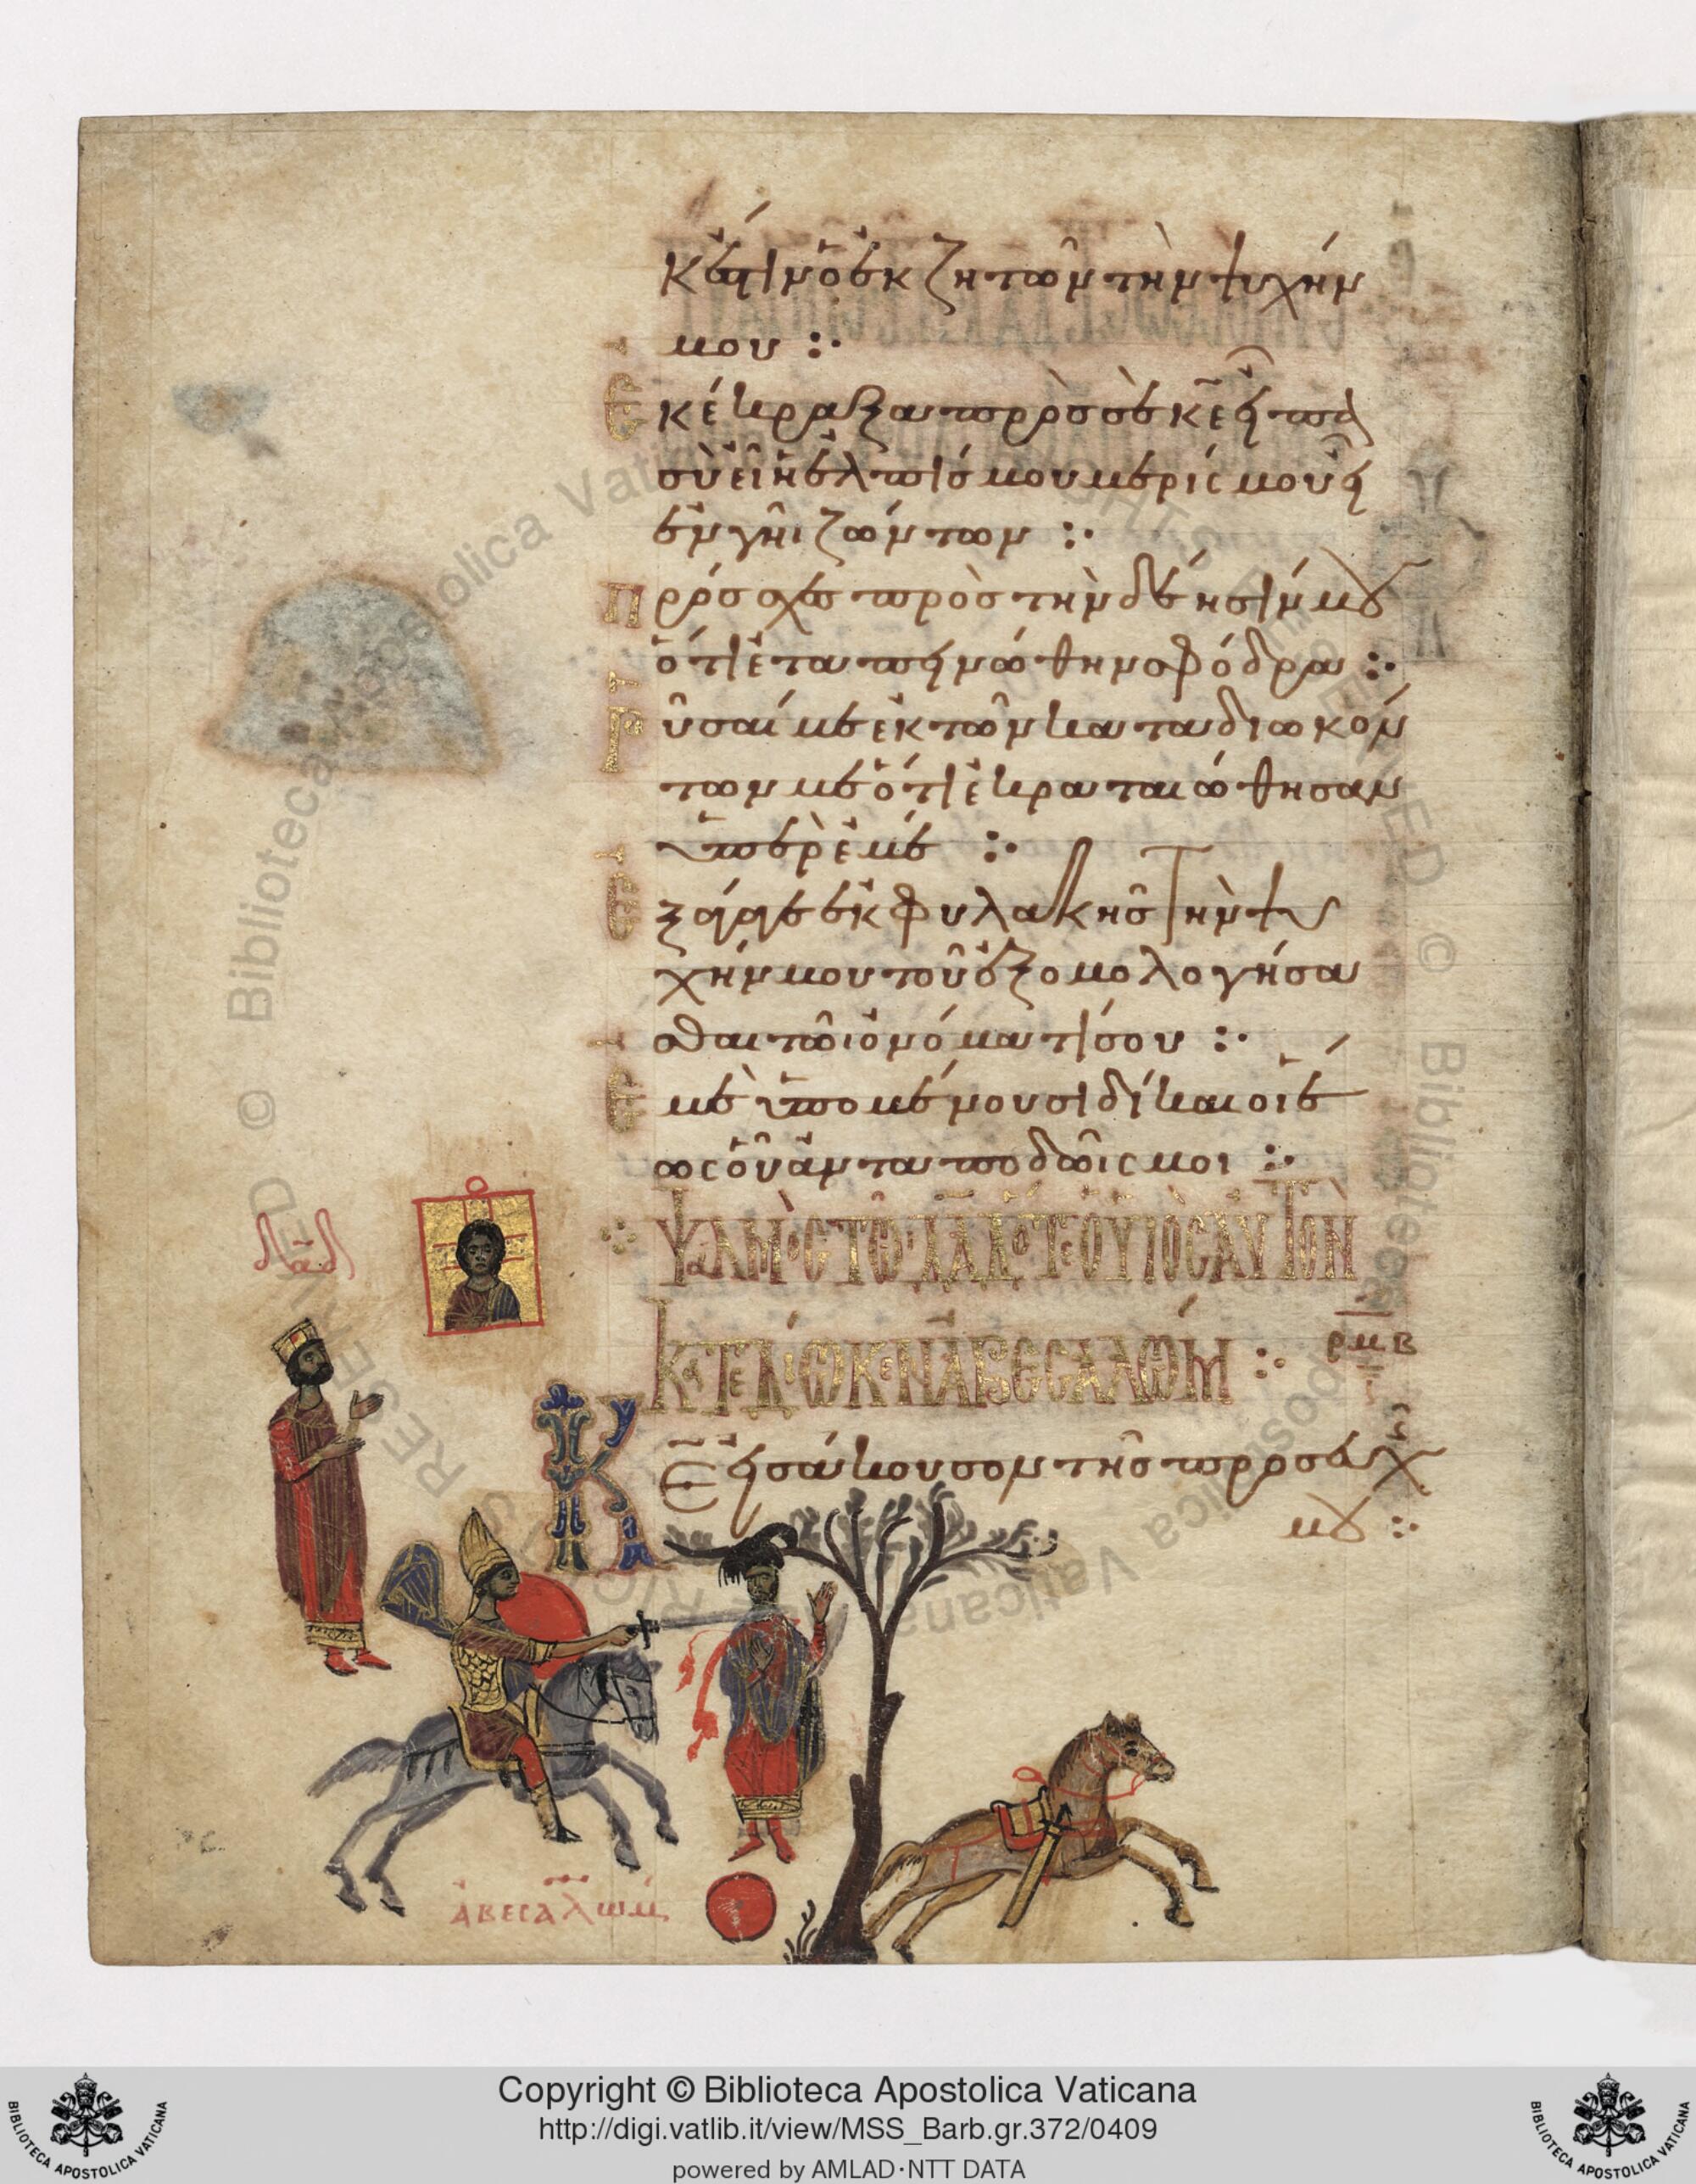 κ ἔστιν ὁ ἐκζητῶν τὴν ψυχήν
μου :·
Ἐκέκραξα πρὸς σὲ κ̅ε̅ εἶπα
σὺ εἶ ἡ ἐλπίς μου μερίς μου εἶ
ἐν γῆι ζώντων :·
Πρόσχες πρὸς τὴν δέησίν μου
ὅτι ἐταπεινώθην σφόδρα :·
Ῥῦσαί με ἐκ τῶν καταδιωκόν
των με ὅτι ἐκραταιώθησαν
ὑπὲρ ἐμέ :·
Ἐξάγαγε ἐκ φυλακῆς τὴν ψυ
χήν μου τοῦ ἐξομολογήσα
σθαι τῶι ὀνόματί σου :·
Ἐμὲ ὑπομένουσι δίκαιοι ἕ
ως οὗ ἀνταποδῶις μοι :·
δα̅δ
ΨΑΛΜὸC ΤῶΙ ΔΑΔ ὅΤΕ Ὁ ΥἹὸC ΑΥΤὸΝ
ΚΑΤΕΔίωΚΕΝ ἈΒΕCΑΛώΜ :·
ρμβ
Κ̅Ε̅ εἰσάκουσον τῆς προσευχῆς
μου :·
ἀβεσαλώμ
Copyright © Biblioteca Apostolica Vaticana
http://digi.vatlib.it/view/MSS_Barb.gr.372/0409
powered by AMLAD·NTT DATA
BIBLIOTECA APOSTOLICA VATICANA
BIBLIOTECA APOSTOLICA VATICANA